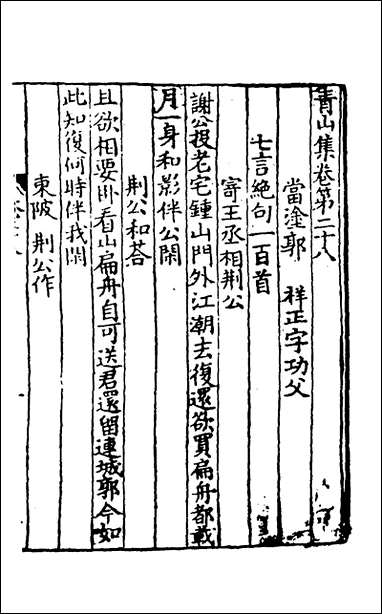 青山集卷第二十八
當塗郭　祥正字功父
七言絶句一百首
寄王丞相荆公
謝公投老宅鍾山門外江潮去復還欲買扁舟都載
月一身和影伴公閑
荆公和荅
且欲相要卧看山扁舟自可送君還留連城郭今如
此知復何時伴我閑
東陂　荆公作